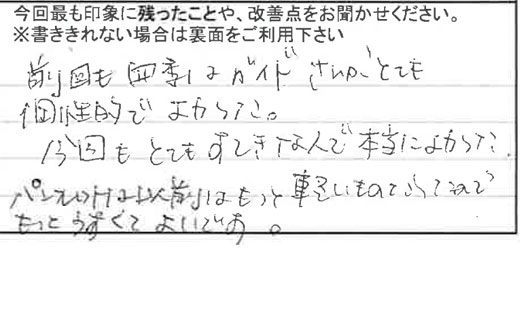 今回最も印象に残ったことや、改善点をお聞かせください。
※書ききれない場合は裏面をご利用下さい
前回も四季はガイドさんがとても
個性的でよかった。
今回もとてもすてきな人で本当によかった。
パンフレットは以前はもっと軽いもので
もっとうすくてよいです。